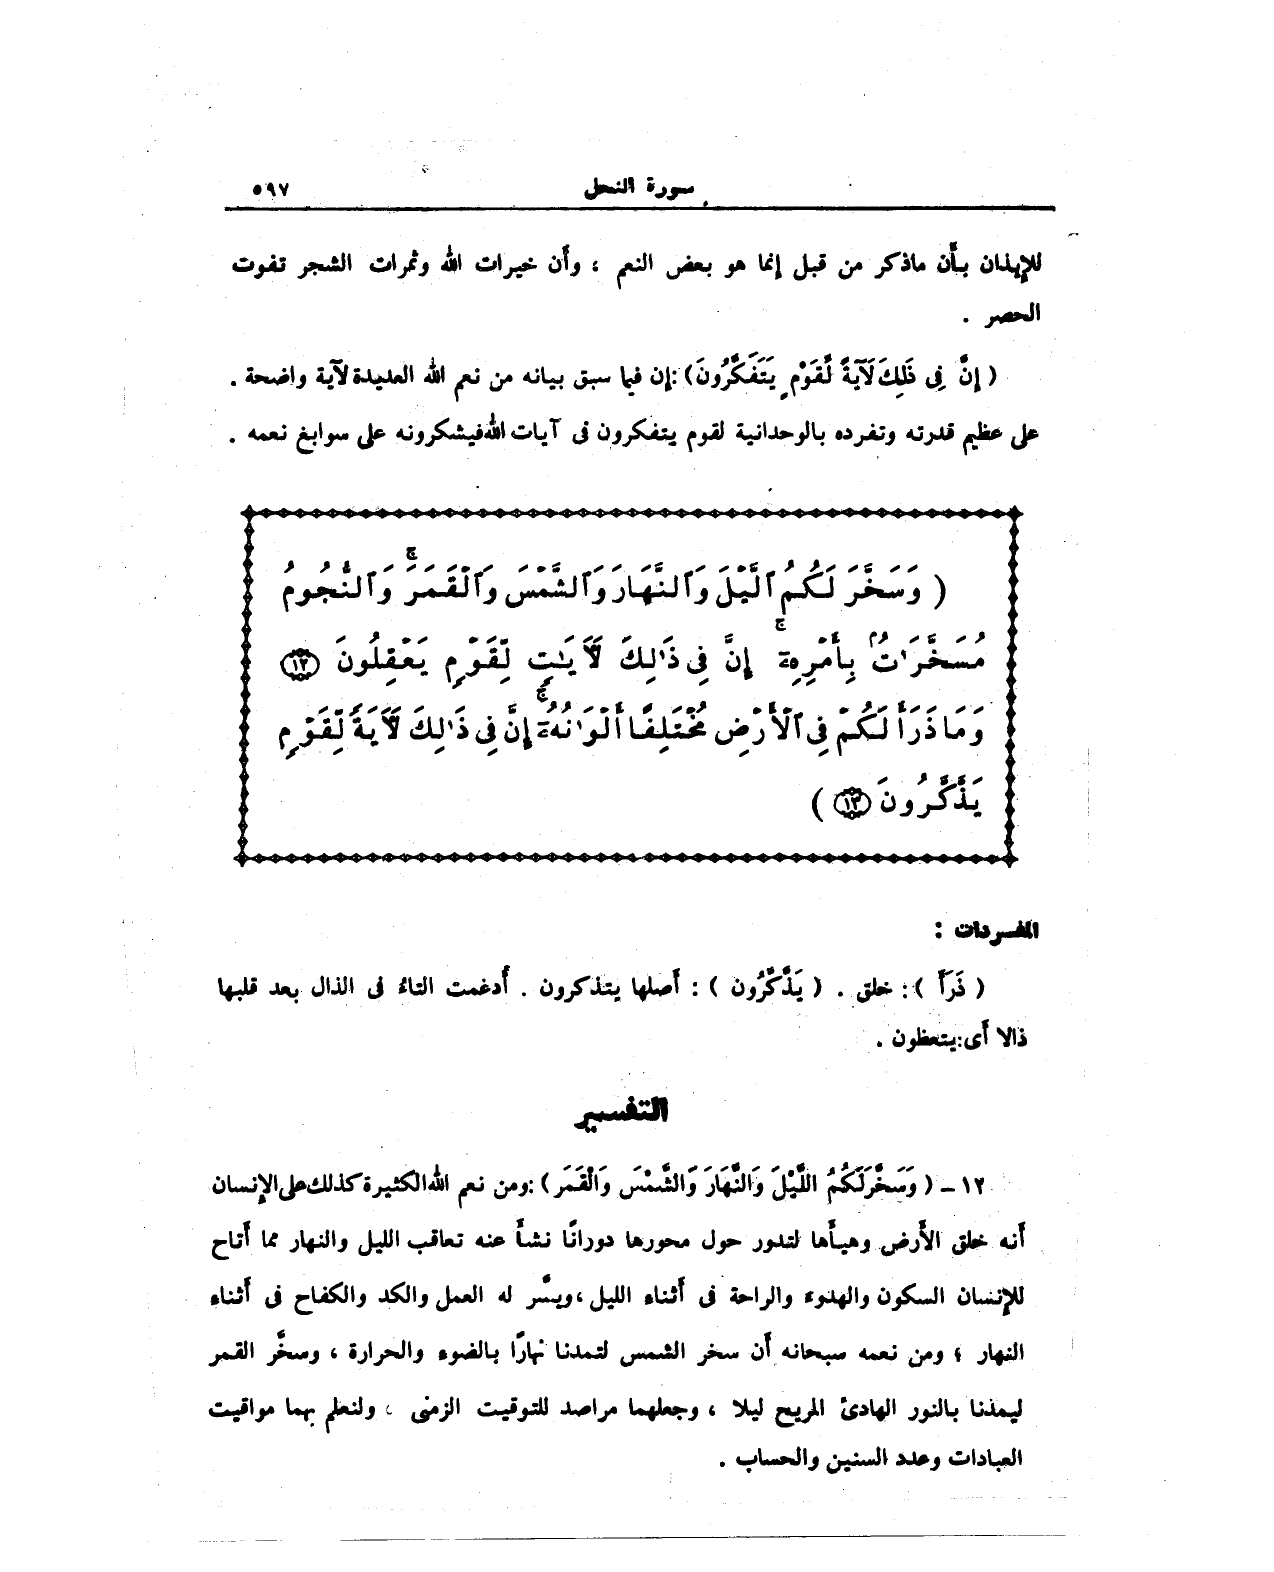 سورة النحل ٥٩٧
للإيذان بأن ماذكر من قبل إنما هو بعض النعم ، وأن خيرات الله وثمرات الشجر تفوت
الحصر .
( إِنَّ فِى ذَلِكَ لَآيَةً لِّقَوْمٍ يَتَفَكَّرُونَ) :إن فيما سبق بيانه من نعم الله العديدة لآية واضحة .
على عظيم قدرته وتفرده بالوحدانية لقوم يتفكرون فى آيات الله فيشكرونه على سوابغ نعمه .
( وَسَخَّرَ لَكُمُ ٱلَّيْلَ وَٱلنَّهَارَ وَٱلشَّمْسَ وَٱلْقَمَرَ ۖ وَٱلنُّجُومُ
مُسَخَّرَٰتٌۢ بِأَمْرِهِۦٓ ۗ إِنَّ فِى ذَٰلِكَ لَأَيَٰتٍ لِّقَوْمٍ يَعْقِلُونَ ⑫
وَمَا ذَرَأَ لَكُمْ فِى ٱلْأَرْضِ مُخْتَلِفًا أَلْوَٰنُهُۥٓ ۗ إِنَّ فِى ذَٰلِكَ لَأَيَةً لِّقَوْمٍ
يَذَّكَّرُونَ ⑬ )
المفسردات :
( ذَرَأَ ) : خلق . ( يَذَّكَّرُون ) : أصلها يتذكرون . أدغمت التاءُ فى الذال بعد قلبها
ذالا أى:يتعظون .
التفسير
١٢ – ( وَسَخَّرَ لَكُمُ اللَّيْلَ وَالنَّهَارَ وَالشَّمْسَ وَالْقَمَرَ ) :ومن نعم الله الكثيرة كذلك على الإنسان
أنه خلق الأرض وهيأها لتدور حول محورها دورانًا نشأ عنه تعاقب الليل والنهار مما أتاح
للإنسان السكون والهدوء والراحة فى أثناء الليل ،ويسَّر له العمل والكد والكفاح فى أثناء
النهار ؛ ومن نعمه سبحانه أن سخر الشمس لتمدنا نهارًا بالضوء والحرارة ، وسخَّر القمر
ليمدنا بالنور الهادئ المريح ليلا ، وجعلهما مراصد للتوقيت الزمنى ، ولنعلم بهما مواقيت
العبادات وعدد السنين والحساب .